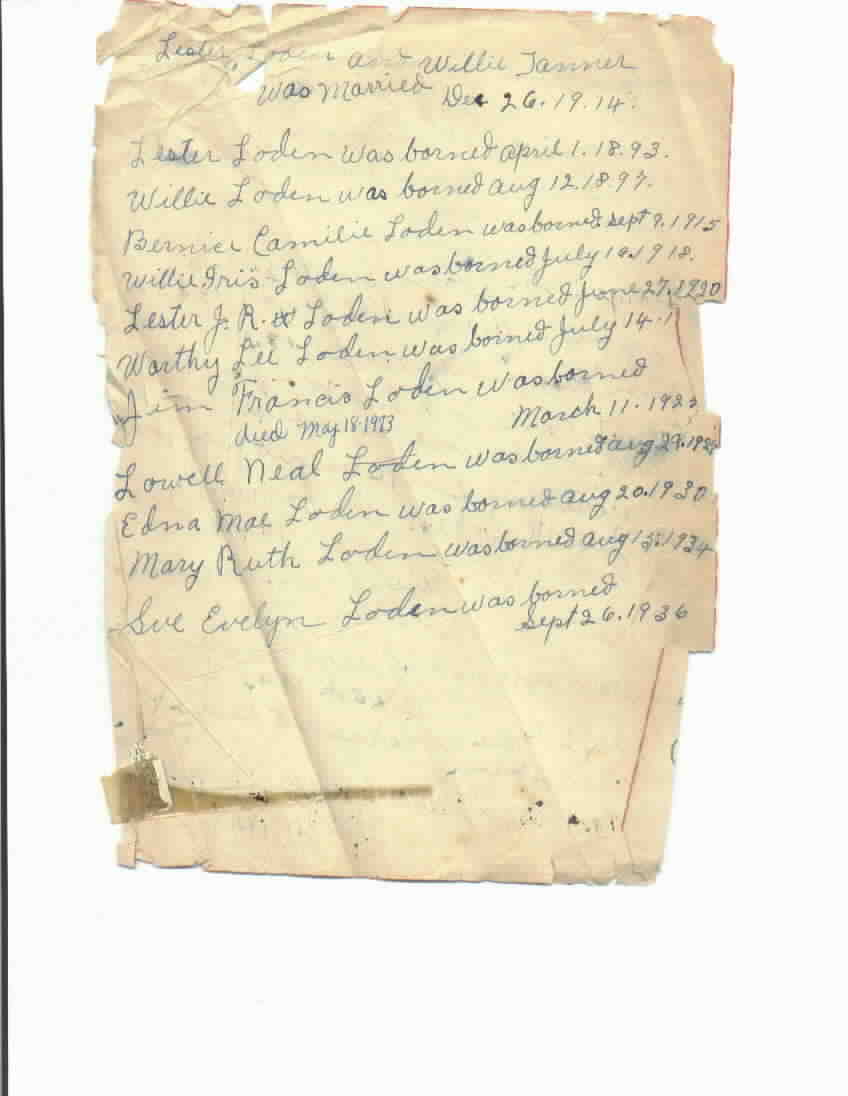 Lester Loden and Willie Tanner
was Married Dec 26.19.14.
Lester Loden was borned april 1.18.93.
Willie Loden was borned aug 12.18.97.
Bernice Camilie Loden was borned sept 9.1915
Willie Iris Loden was borned July 1918.
Lester J.R. Loden was borned June 27.1920
Worthy Lee Loden was borned July 14.1
Jim Francis Loden was borned
March 11.192
died May 18-1973
Lowell Neal Loden was borned aug 29.192
Edna Mae Loden was borned aug 20.1930
Mary Ruth Loden was borned aug 15.1934
Sue Evelyn Loden was borned
Sept 26.1936